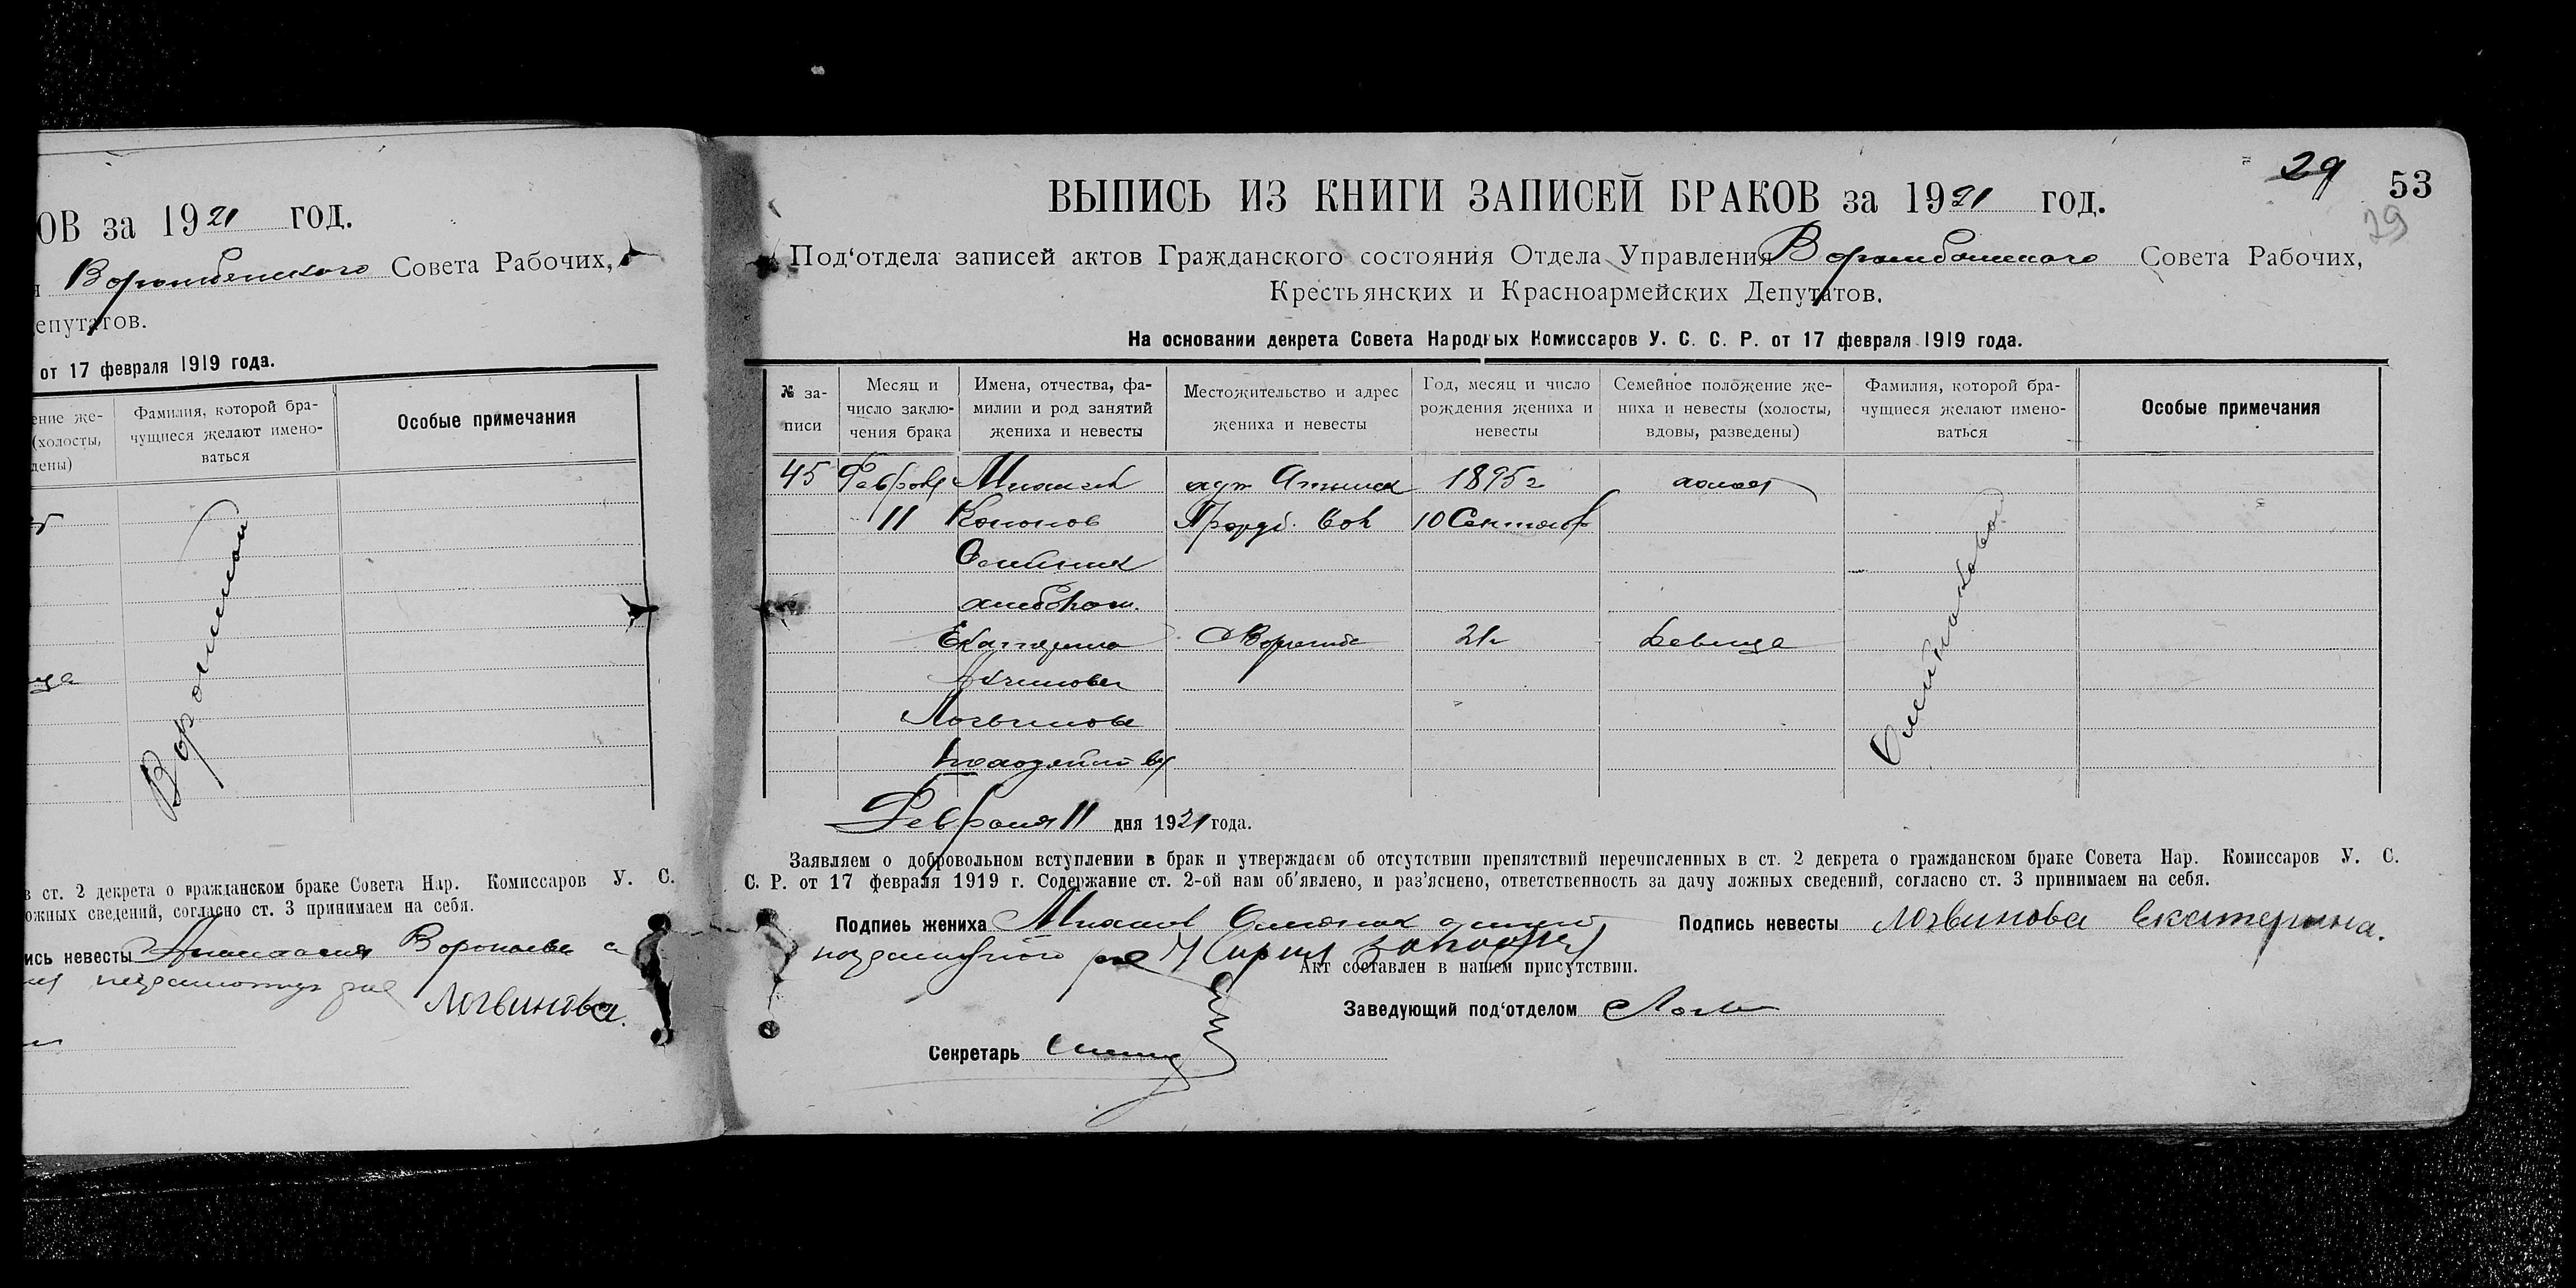 ОВ за 1921 год.
Совета Рабочих,
епутатов.
от 17 февраля 1919 года.
ение же-
(холосты,
дены)
Фамилия, которой бра-
чущиеся желают имено-
ваться
Особые примечания
в ст. 2 декрета о гражданском браке Совета Нар. Комиссаров У. С.
ожных сведений, согласно ст. 3 принимаем на себя.
ись невесты Анастасия
Логвинова.
29 53
29
ВЫПИСЬ ИЗ КНИГИ ЗАПИСЕЙ БРАКОВ за 1921 год.
Под‘отдела записей актов Гражданского состояния Отдела Управления Совета Рабочих,
Крестьянских и Красноармейских Депутатов.
На основании декрета Совета Народных Комиссаров У. С. С. Р. от 17 февраля 1919 года.
№ за-
писи
Месяц и
число заклю-
чения брака
Имена, отчества, фа-
милии и род занятий
жениха и невесты
Местожительство и адрес
жениха и невесты
Год, месяц и число
рождения жениха и
невесты
Семейное положение же-
ниха и невесты (холосты,
вдовы, разведены)
Фамилия, которой бра-
чущиеся желают имено-
ваться
Особые примечания
45 Февраля Михаил 1895 г холост
11 Кононов 10 Сентября
Олейник
хлебопаш.
Екатерина 21 г Девица
Логвинова
Февраля 11 дня 1921 года.
Заявляем о добровольном вступлении в брак и утверждаем об отсутствии препятствий перечисленных в ст. 2 декрета о гражданском браке Совета Нар. Комиссаров У. С.
С. Р. от 17 февраля 1919 г. Содержание ст. 2-ой нам об'явлено, и раз'яснено, ответственность за дачу ложных сведений, согласно ст. 3 принимаем на себя.
Подпись жениха Михаил Олейник
Подпись невесты Логвинова Екатерина.
Акт составлен в нашем присутствии.
Заведующий под‘отделом
Секретарь